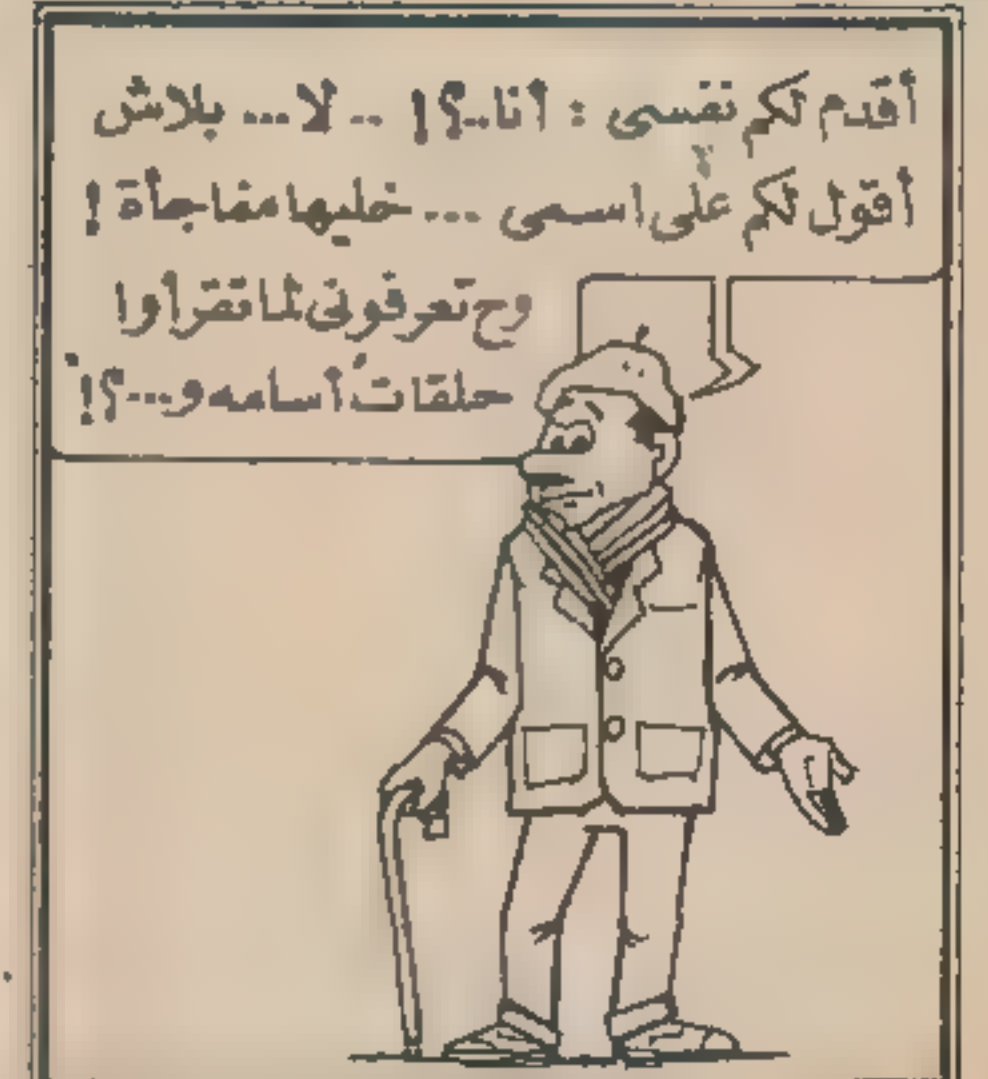 أقدم لكم نفسى : أنا..؟! .. لا... بلاش
أقول لكم على اسمى ... خليها مفاجأة !
وح تعرفونى لما تقرأوا
حلقات أسامه و...؟!